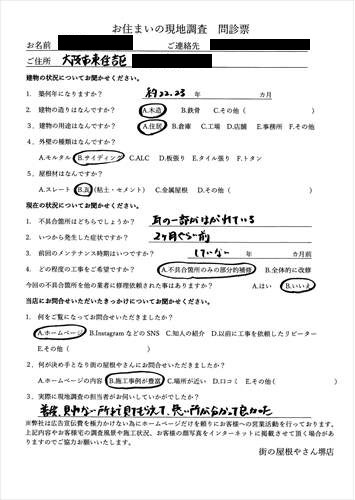 お住まいの現地調査 問診票
お名前 ご連絡先
ご住所 大阪市東住吉区
建物の状況についてお聞かせください。
1. 築何年になりますか? 約22.23 年 カ月
2. 建物の造りはなんですか? A.木造 B.鉄骨 C.その他( )
3. 建物の用途はなんですか? A.住居 B.倉庫 C.工場 D.店舗 E.事務所 F.その他
4. 外壁の種類はなんですか?
A.モルタル B.サイディング C.ALC D.板張り E.タイル張り F.トタン
5. 屋根材はなんですか?
A.スレート B.瓦(粘土・セメント) C.金属屋根 D.その他( )
現在の状況についてお聞かせください。
1. 不具合箇所はどちらでしょうか? 瓦の一部がはがれている
2. いつから発生した症状ですか? 2ヶ月ぐらい前
3. 前回のメンテナンス時期はいつですか? していない 年 カ月前
4. どの程度の工事をご希望ですか? A.不具合箇所のみの部分的補修 B.全体的に改修
今回の不具合箇所を他の業者に修理依頼された事はありますか? A.はい B.いいえ
当店にお問合せいただいたきっかけについてお聞かせください。
1. 何をご覧になってお問合せいただきましたか?
A.ホームページ B.InstagramなどのSNS C.知人の紹介 D.以前に工事を依頼したリピーター
E.その他( )
2. 何が決め手となり街の屋根やさんにお問合せいただきましたか?
A.ホームページの内容 B.施工事例が豊富 C.場所が近い D.口コミ E.その他( )
3. 実際に現地調査の担当者がお伺いしていかがでしたか?
普段、見れない所まで見てもらえて、悪い所が分かって良かった
※弊社は広告宣伝費を極力かけない為にホームページだけを頼りにお客様への営業活動を行っております。
上記内容やお客様宅の調査風景や施工状況、お客様の顔写真をインターネットに掲載させて頂く場合があ
りますのでご協力お願いいたします。
街の屋根やさん堺店